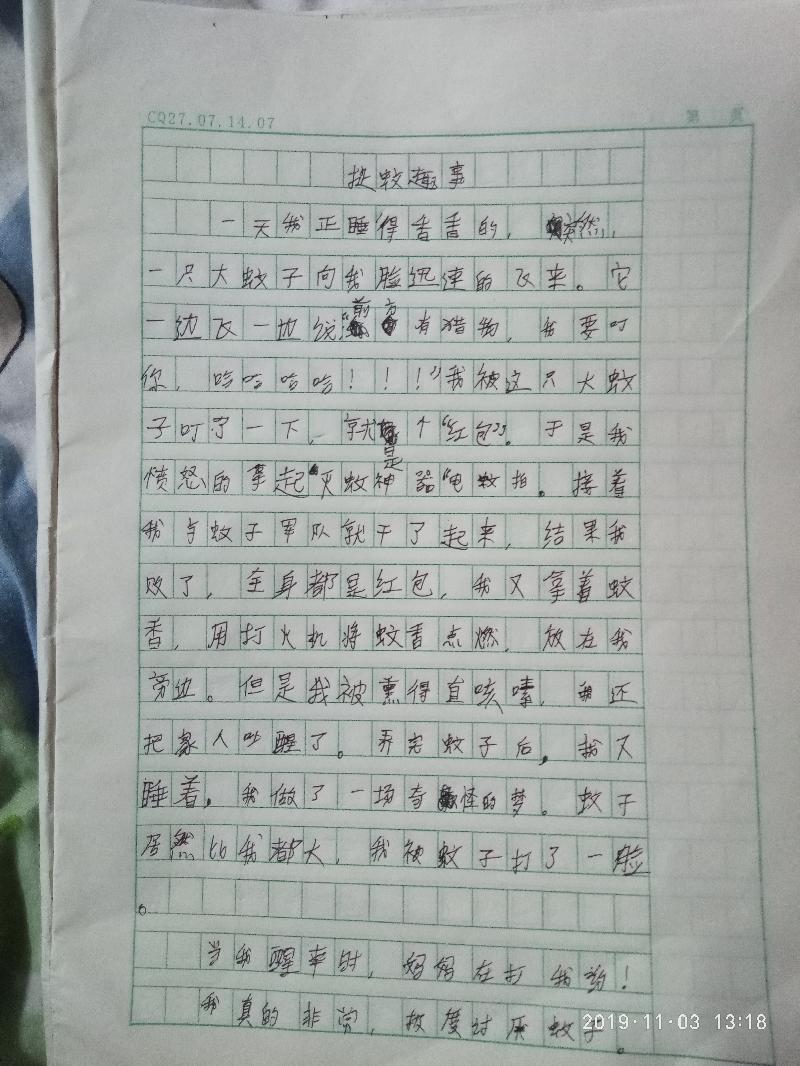 CQ27.07.14.07
第 页
捉蚊趣事
一天我正睡得香香的，突然，
一只大蚊子向我脸迅速的飞来。它
一边飞一边说“前方有猎物，我要叮
你，哈哈哈哈！！！”我被这只大蚊
子叮了一下，就是个“红包”。于是我
愤怒的拿起“灭蚊神器”电蚊拍。接着
我与蚊子军队就干了起来，结果我
败了，全身都是红包，我又拿着蚊
香，用打火机将蚊香点燃，放在我
旁边。但是我被熏得直咳嗽，我还
把家人吵醒了。弄完蚊子后，我又
睡着，我做了一场奇怪的梦。蚊子
居然比我都大，我被蚊子打了一脸
。
当我醒来时，妈妈在打我的！
我真的非常，极度讨厌蚊子。
2019·11·03 13:18